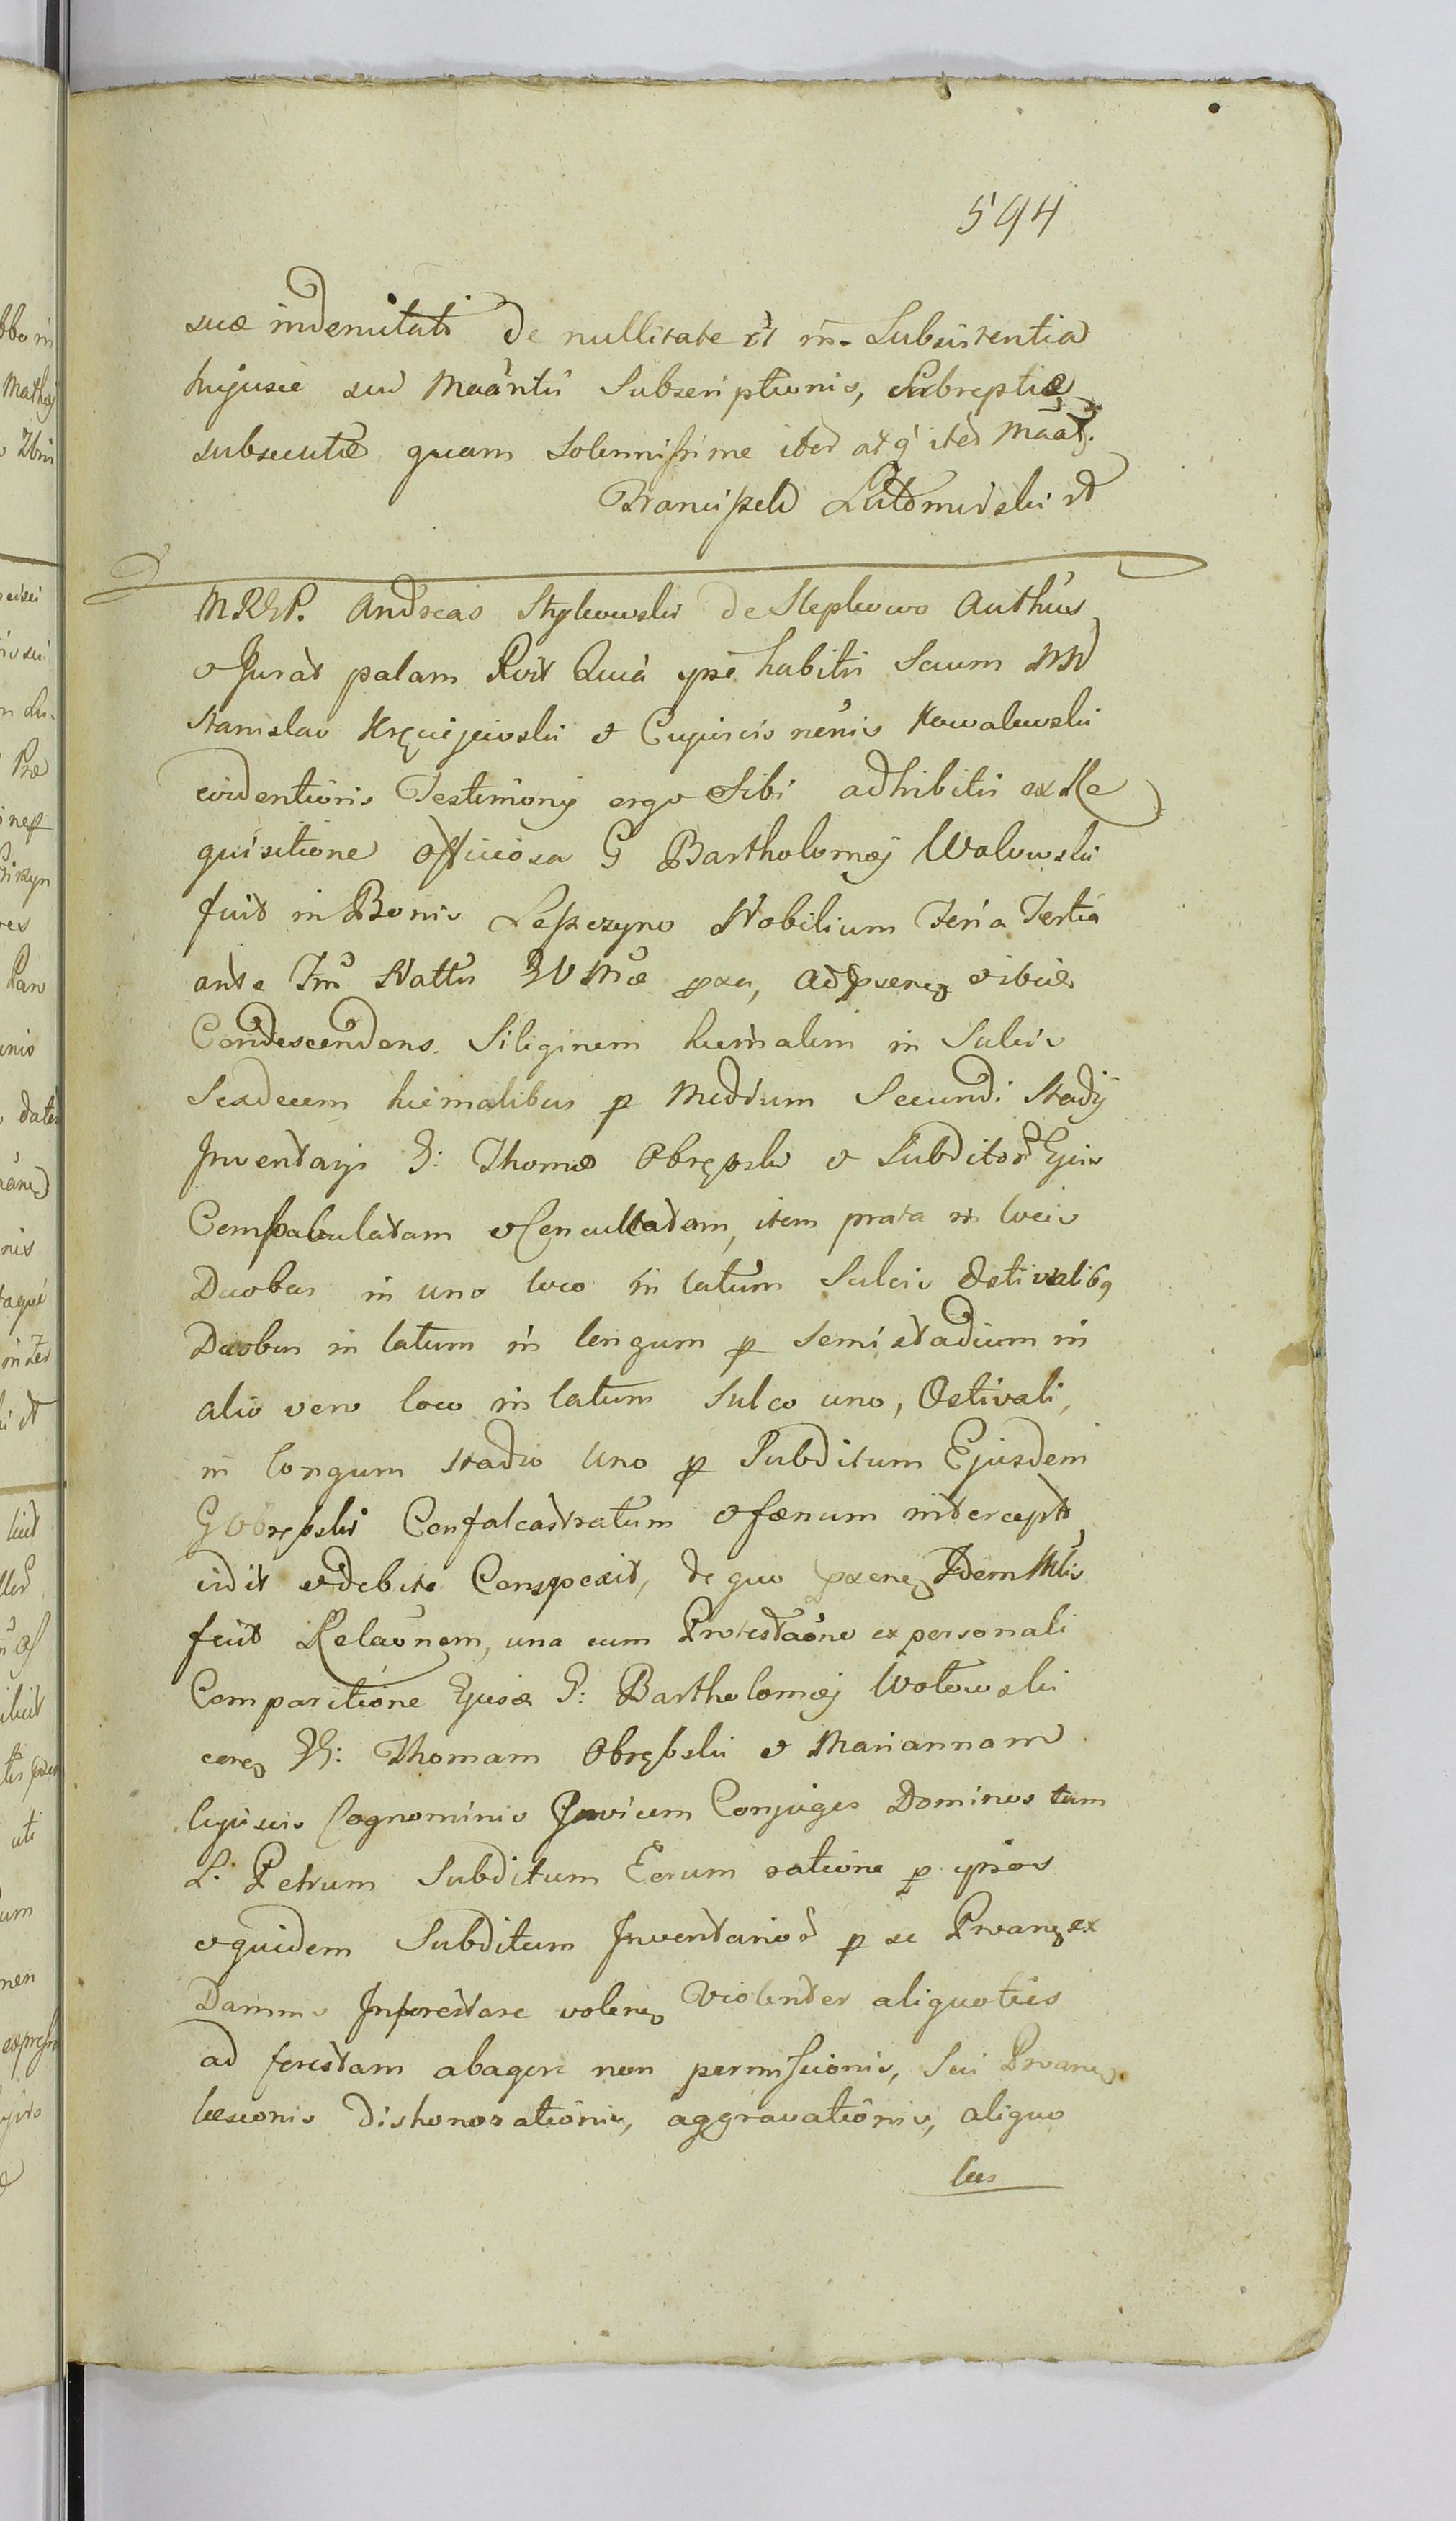 594
suæ indemnitati de nullitate et in Subsistentia
hujuscè sui Maantû Subscriptionis, Subreptiæ
subsecutæ quam Solennissime iteâ atq iteâ Maatj.
Franciszek Lutomirski
MRGP. Andreas Stylkowski de Slepkowo Authûs
et Jurat palam Rvit Quià ipse habitis Secum NN
Stanislao Krzciejewski et Cujuscis nênis Kowalewski
evidentioris Testimonij ergo Sibi adhibitis ex Re
quisitione officiosa G Bartholomæj Wolowski
fuit in Bonis Leszczyno Nobilium Feria Tertia
ante Fm Nattis BVMæ pxa, ad psens et ibiê
Condescendens. Siliginem hiemalem in Sulcis
Sexdecem hiemalibus p Medium Secundi Stadij
Inventarys G: Thomæ Obrębski et Subditor Ejus
Compabulatam et Conculcatam, item prata in locis
Duobus in uno loco in latum Sulcis Æstivalibq
Duobus in latum in longum p semistadium in
alio vero loco in latum Sulco uno, Æstivali,
in longum stadio Uno p Subditum Ejusdem
G Obrębski Confalcastratum et fænum intercept
vidit et debite Conspexit, de quo psens Idem Mlis
fecit Relaônem, una cum Protestaône ex personali
Comparitione Ejusdê G: Bartholomæj Wołowski
coræ G: Thomam Obrębski et Mariannam
Cujuscis Cognominis Invicem Conjuges Dominos tum
L. Petrum Subditum Eorum ratione p ipsos
et quidem Subditum Inventarior p se Prvans ex
Damno Inforestare volens Violenter aliquoties
ad forestam abagere non permissionis, Sui Prvans
læsionis Dishonorationis, aggravationis, aliquo
ties